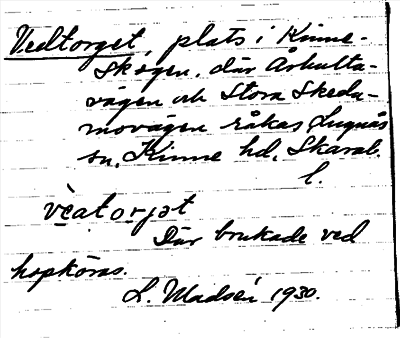 Vedtorget, plats i Kinne-
Skogen, där Århulta-
vägen och Stora Skeda-
movägen råkas Lugnås
sn, Kinne hd, Skarab.
l.
vèatorjət
Där brukade ved
hopköras.
L. Madsén 1930.